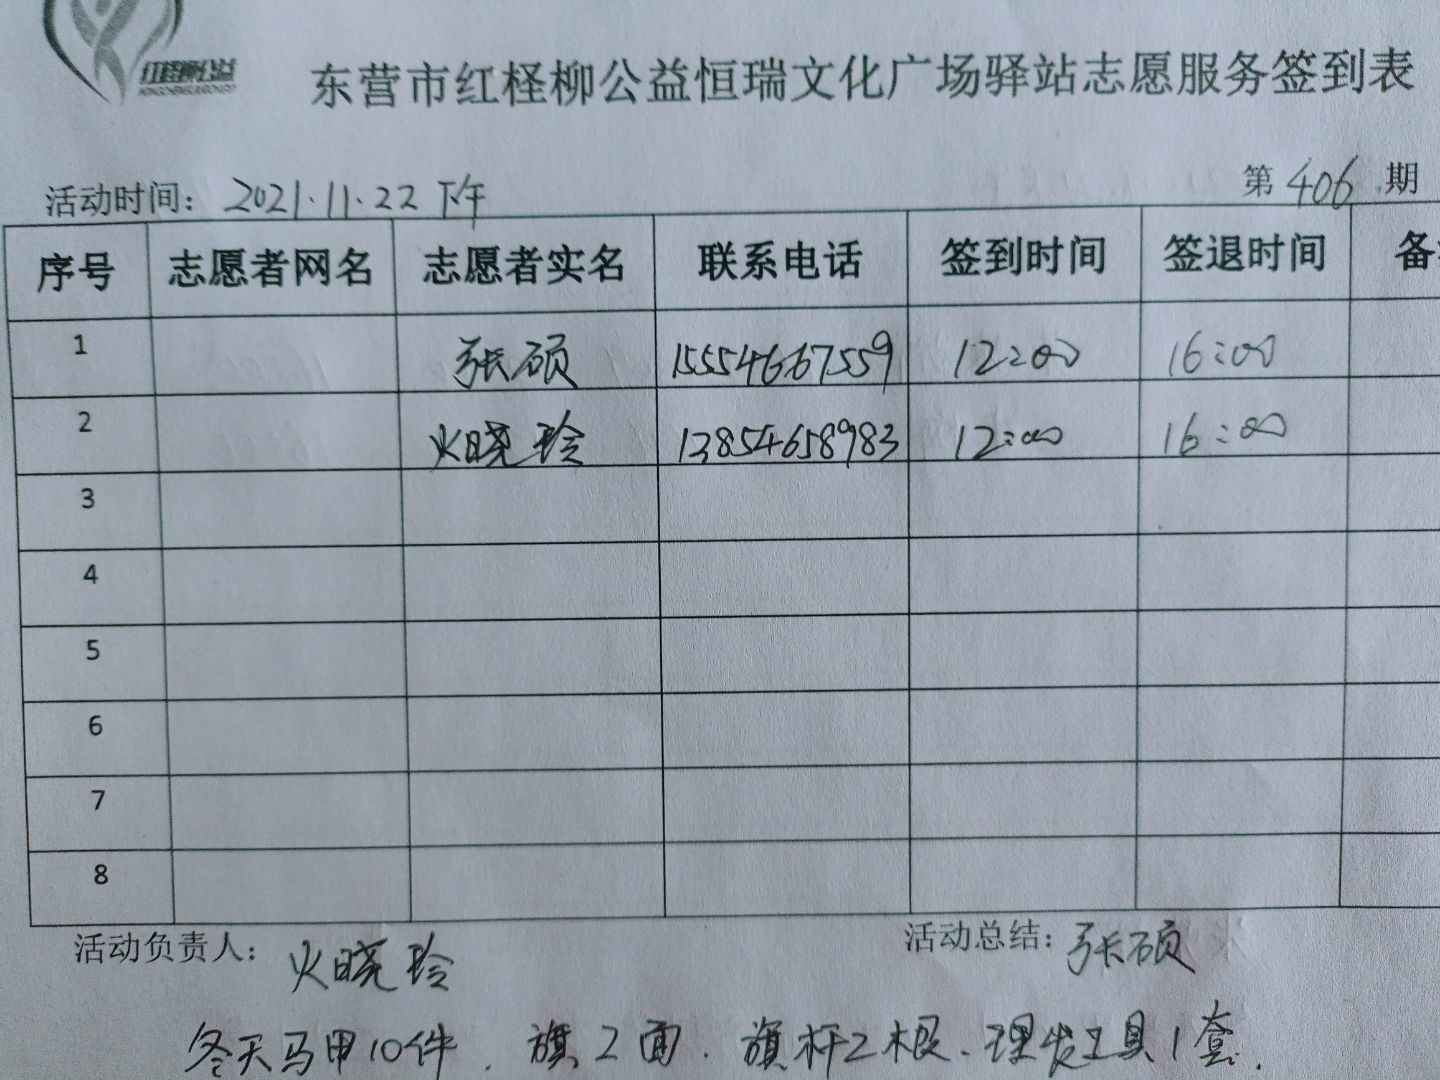 红柽柳公益
东营市红柽柳公益恒瑞文化广场驿站志愿服务签到表
活动时间：2021.11.22下午 第406期
序号 志愿者网名 志愿者实名 联系电话 签到时间 签退时间 备
1 张硕 15554667559 12:00 16:00
2 火晓玲 13854658983 12:00 16:00
3
4
5
6
7
8
活动负责人：火晓玲 活动总结：张硕
冬天马甲10件．旗2面．旗杆2根、理发工具1套．